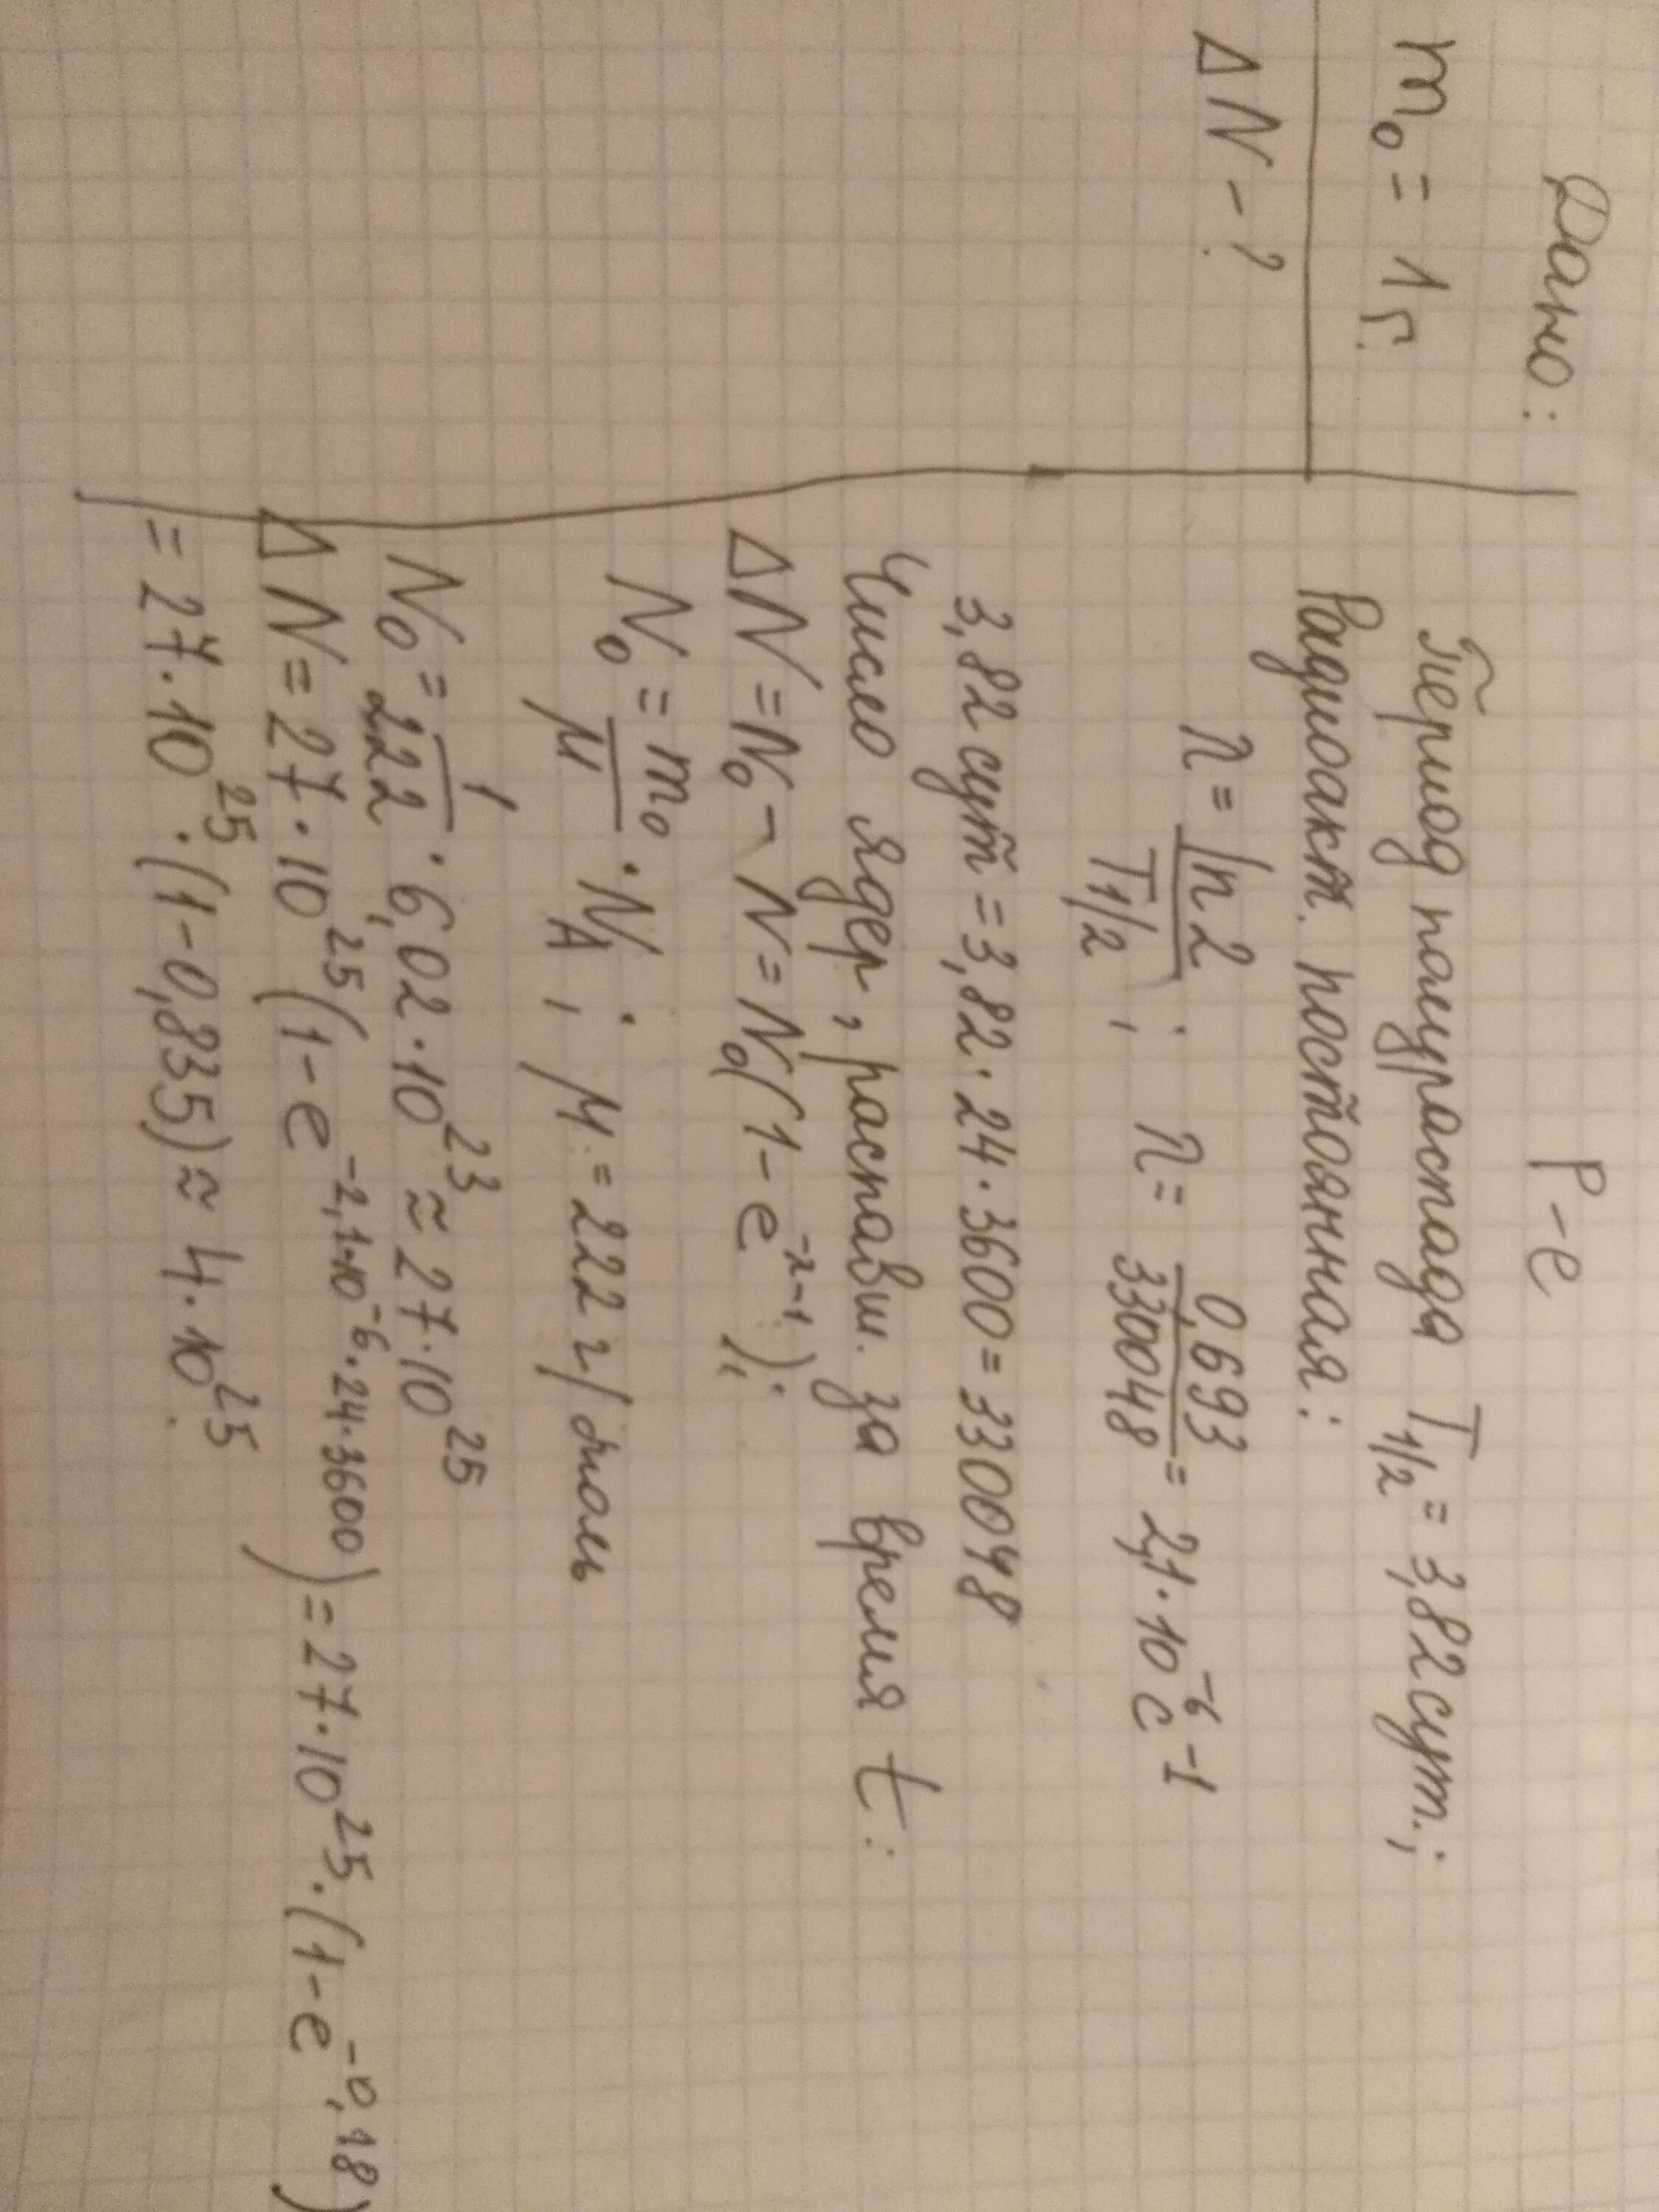 Дано:
m₀ = 1 г.
ΔN - ?
Р-е
Период полураспада T₁/₂ = 3,82 сут.;
Радиоакт. постоянная:
λ = ln2/T₁/₂; λ = 0,693/330048 = 2,1·10⁻⁶ с⁻¹
3,82 сут = 3,82·24·3600 = 330048
Число ядер, распавш. за время t:
ΔN = N₀ - N = N₀(1 - e⁻λ⁻¹);
N₀ = m₀/μ · N_A; μ = 222 г/моль
N₀ = 1/222 · 6,02·10²³ ≈ 27·10²⁵
ΔN = 27·10²⁵(1 - e^(-2,1·10⁻⁶·24·3600)) = 27·10²⁵·(1 - e^(-0,18))
= 27·10²⁵·(1 - 0,835) ≈ 4·10²⁵